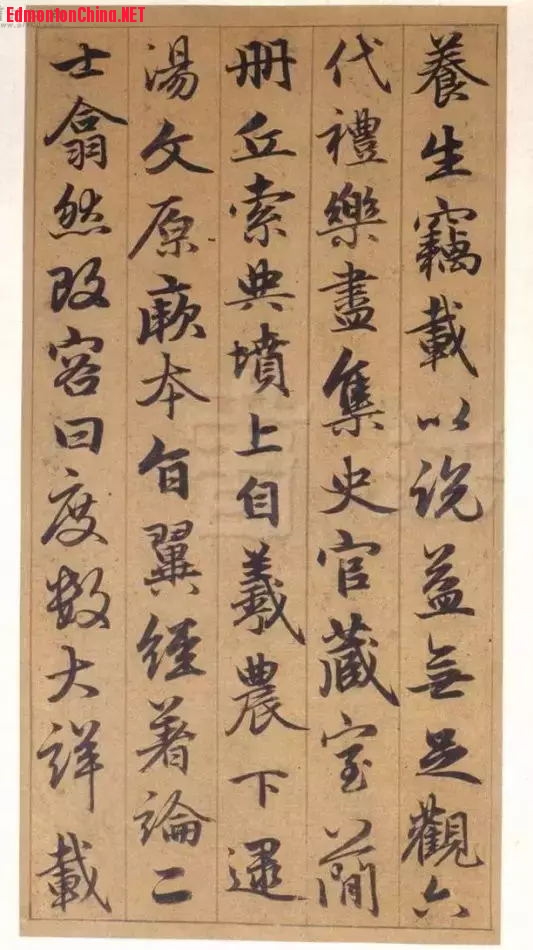 EdmontonChina.NET
養生竊載以說益無足觀六
代禮樂盡集史官藏室簡
冊丘索典墳上自羲農下逮
湯文原厥本旨翼經著論二
士翕然改容曰度數大詳載